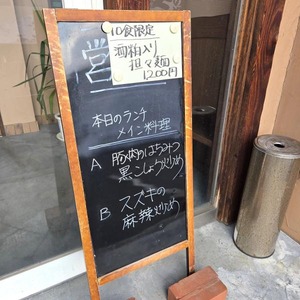 10食限定
酒粕入り
担々麺
1200円
営
本日のランチ
メイン料理
A 豚肉のはちみつ
黒こしょう炒め
B スズキの
麻辣炒め